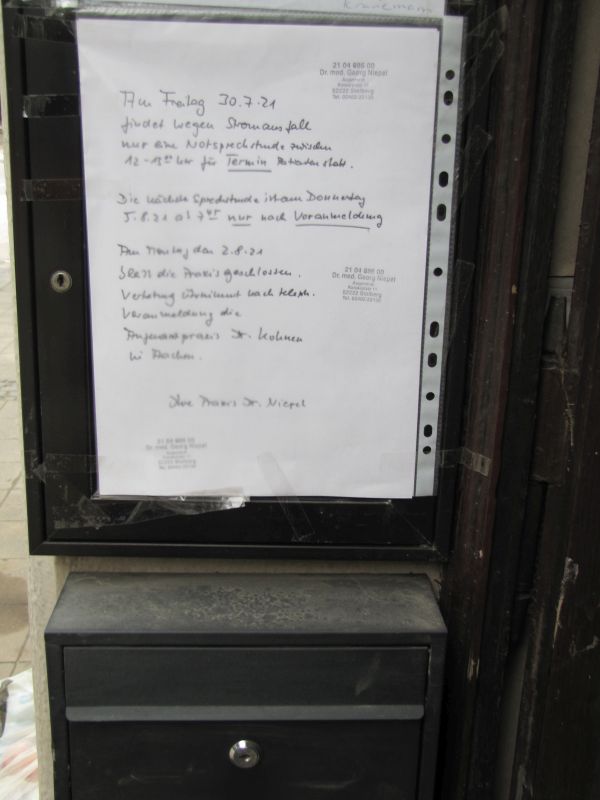 Kranemann
21 04 886 00
Dr. med. Georg Niepel
Augenarzt
52222 Stolberg
Am Freitag 30.7.21
findet wegen Stromausfall
nur eine Notsprechstunde zwischen
12-13⁰⁰ Uhr für Termin Patienten statt.
Die nächste Sprechstunde ist am Donnerstag
5.8.21 ab 7⁴⁵ nur nach Voranmeldung
Am Montag den 2.8.21
bleibt die Praxis geschlossen.
21 04 886 00
Dr. med. Georg Niepel
Augenarzt
52222 Stolberg
Vertretung übernimmt nach teleph.
Voranmeldung die
Augenarztpraxis Dr. Kohnen
in Aachen.
Ihre Praxis Dr. Niepel
21 04 886 00
Dr. med. Georg Niepel
Augenarzt
52222 Stolberg